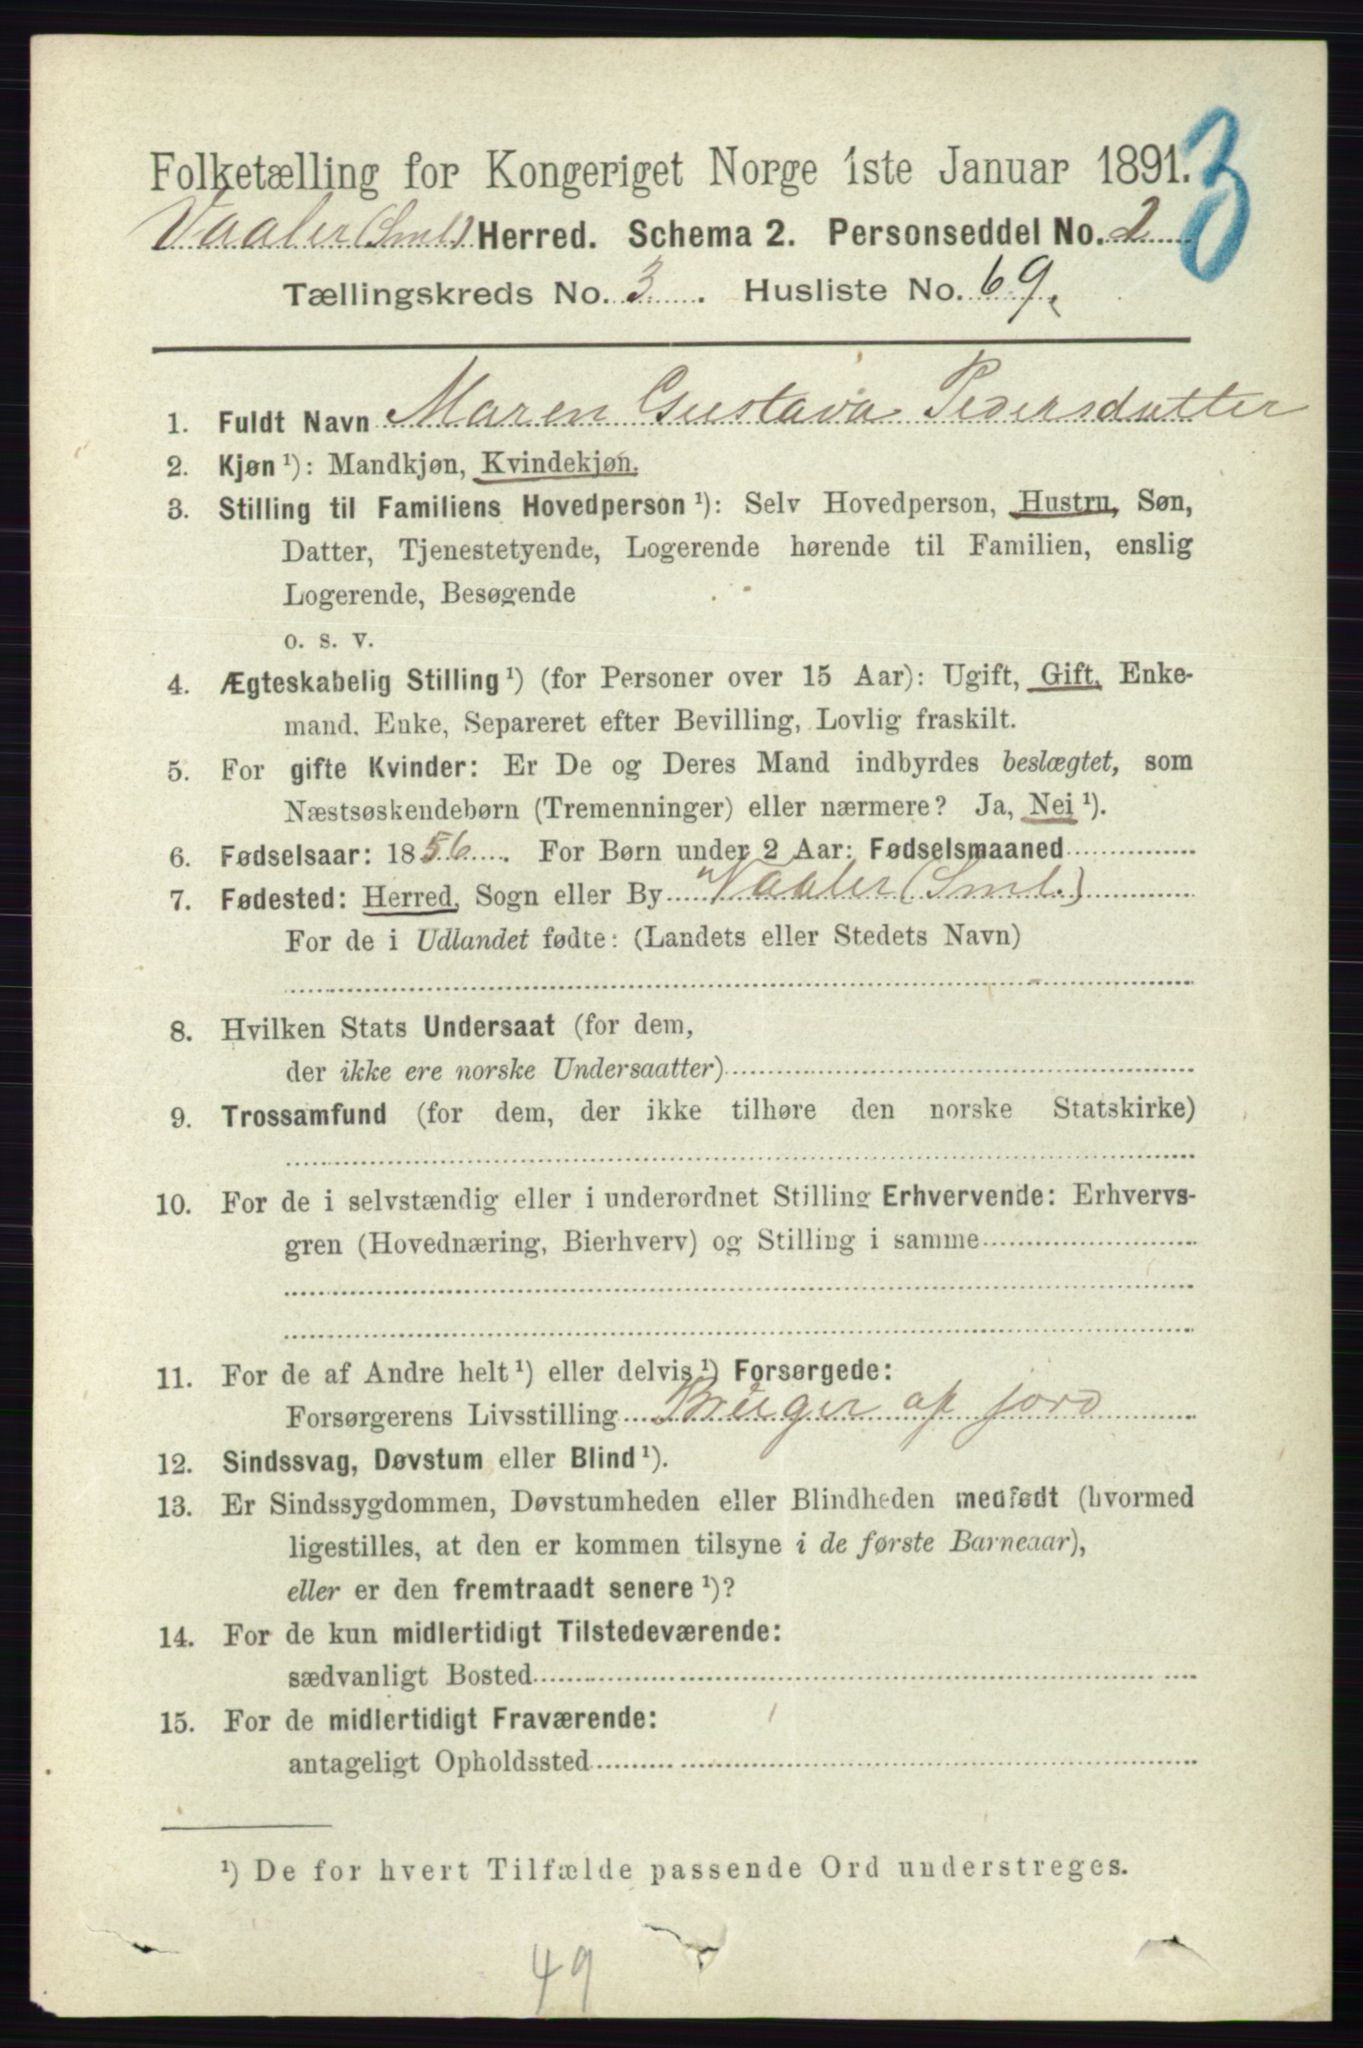 3
Folketælling for Kongeriget Norge 1ste Januar 1891.
Vaaler (Sml.) Herred. Schema 2. Personseddel No. 2
Tællingskreds No. 3 . Husliste No. 69.
1. Fuldt Navn Maren Gustava Pedersdatter
2. Kjøn ¹): Mandkjøn, Kvindekjøn.
3. Stilling til Familiens Hovedperson ¹): Selv Hovedperson, Hustru, Søn,
Datter, Tjenestetyende, Logerende hørende til Familien, enslig
Logerende, Besøgende
o. s. v.
4. Ægteskabelig Stilling ¹) (for Personer over 15 Aar): Ugift, Gift, Enke-
mand, Enke, Separeret efter Bevilling, Lovlig fraskilt.
5. For gifte Kvinder: Er De og Deres Mand indbyrdes beslægtet, som
Næstsøskendebørn (Tremenninger) eller nærmere? Ja, Nei ¹).
6. Fødselsaar: 1856 . For Børn under 2 Aar: Fødselsmaaned
7. Fødested: Herred, Sogn eller By Vaaler (Sml.)
For de i Udlandet fødte: (Landets eller Stedets Navn)
8. Hvilken Stats Undersaat (for dem,
der ikke ere norske Undersaatter)
9. Trossamfund (for dem, der ikke tilhøre den norske Statskirke)
10. For de i selvstændig eller i underordnet Stilling Erhvervende: Erhvervs-
gren (Hovednæring, Bierhverv) og Stilling i samme
11. For de af Andre helt ¹) eller delvis ¹) Forsørgede:
Forsørgerens Livsstilling Bruger af jord
12. Sindssvag, Døvstum eller Blind ¹).
13. Er Sindssygdommen, Døvstumheden eller Blindheden medfødt (hvormed
ligestilles, at den er kommen tilsyne i de første Barneaar),
eller er den fremtraadt senere ¹)?
14. For de kun midlertidigt Tilstedeværende:
sædvanligt Bosted
15. For de midlertidigt Fraværende:
antageligt Opholdssted
¹) De for hvert Tilfælde passende Ord understreges.
49